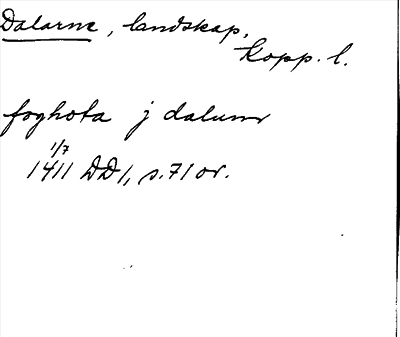 Dalarne, landskap,
Kopp. l.
foghota j dalum
1/7
1411 DD 1, s. 71 or.